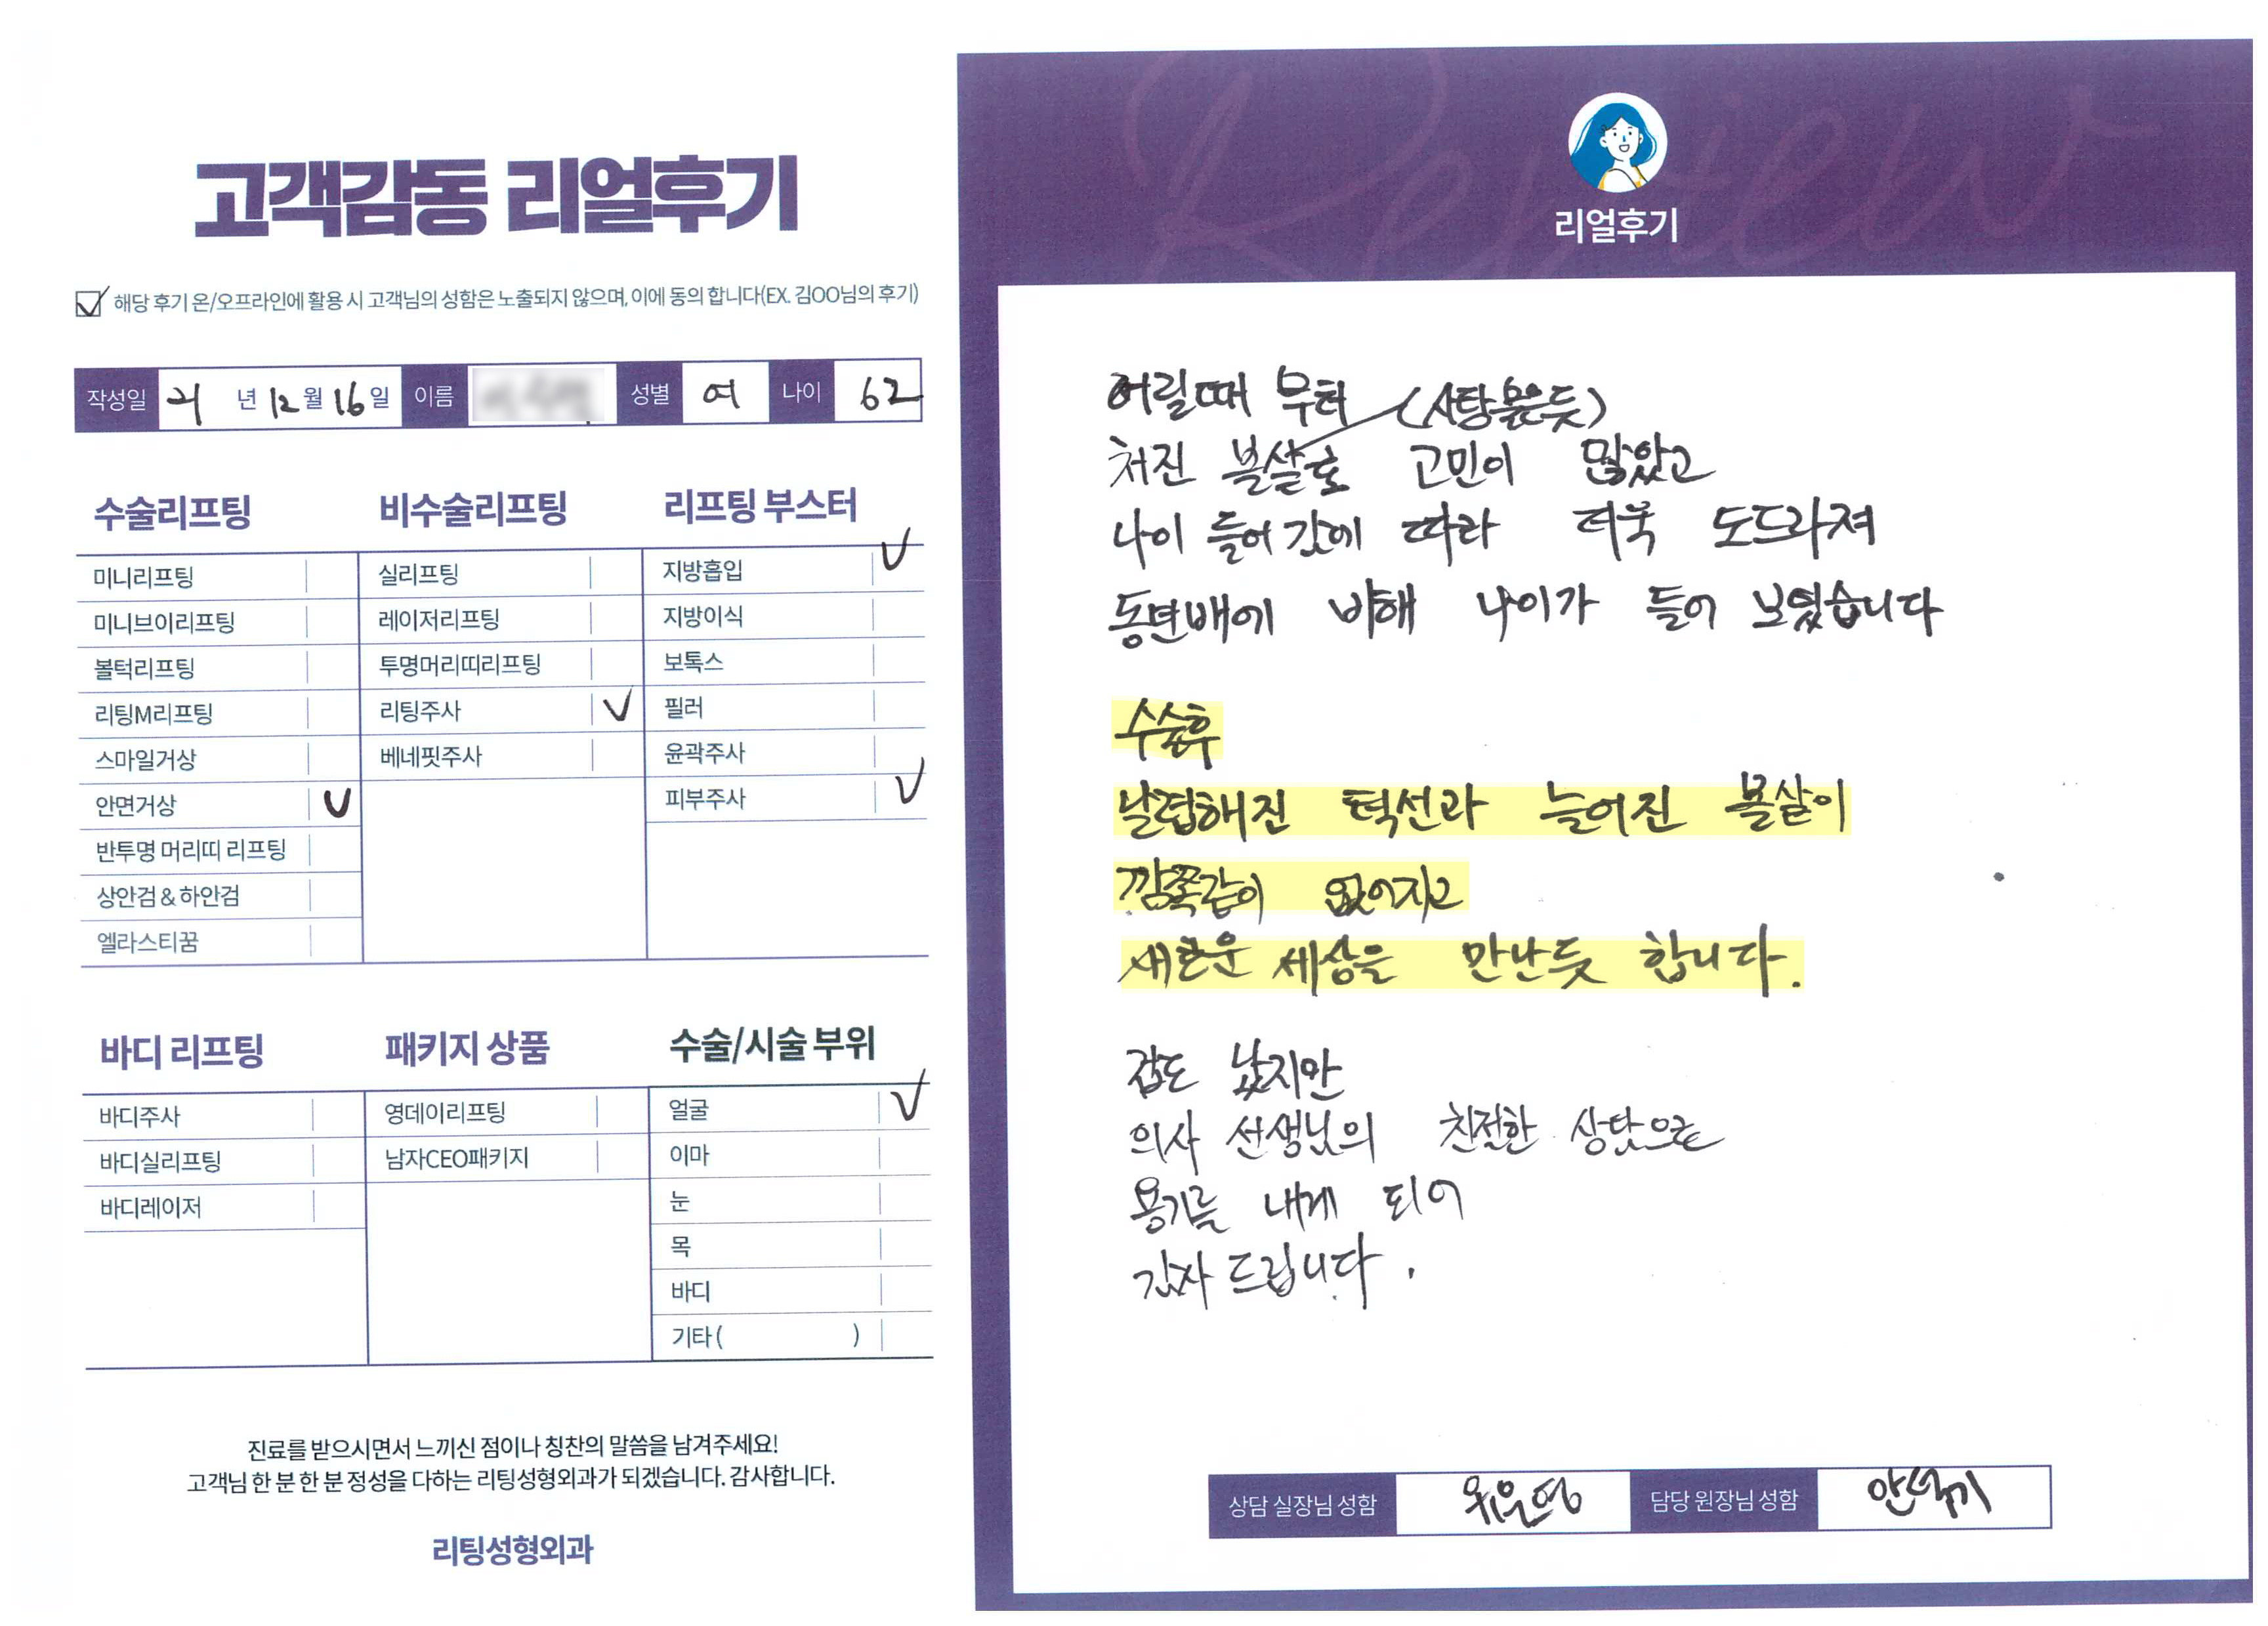 고객감동 리얼후기
해당 후기 온/오프라인에 활용 시 고객님의 성함은 노출되지 않으며, 이에 동의 합니다(EX. 김OO님의 후기)
작성일 21 년 12 월 16 일 이름 성별 여 나이 62
수술리프팅
미니리프팅
미니브이리프팅
볼턱리프팅
리팅M리프팅
스마일거상
안면거상 V
반투명 머리띠 리프팅
상안검 & 하안검
엘라스티꿈
비수술리프팅
실리프팅
레이저리프팅
투명머리띠리프팅
리팅주사 V
베네핏주사
리프팅 부스터
지방흡입 V
지방이식
보톡스
필러
윤곽주사
피부주사 V
바디 리프팅
바디주사
바디실리프팅
바디레이저
패키지 상품
영데이리프팅
남자CEO패키지
수술/시술 부위
얼굴 V
이마
눈
목
바디
기타 ( )
진료를 받으시면서 느끼신 점이나 칭찬의 말씀을 남겨주세요!
고객님 한 분 한 분 정성을 다하는 리팅성형외과가 되겠습니다. 감사합니다.
리팅성형외과
Review
리얼후기
어릴때 부터 (사탕문듯)
처진 볼살로 고민이 많았고
나이 들어감에 따라 더욱 도드라져
동년배에 비해 나이가 들어 보였습니다
수술후
날렵해진 턱선과 늘어진 볼살이
깜쪽같이 없어지고
새로운 세상을 만난듯 합니다.
겁도 났지만
의사 선생님의 친절한 상담으로
용기를 내게 되어
감사 드립니다.
상담 실장님 성함
담당 원장님 성함